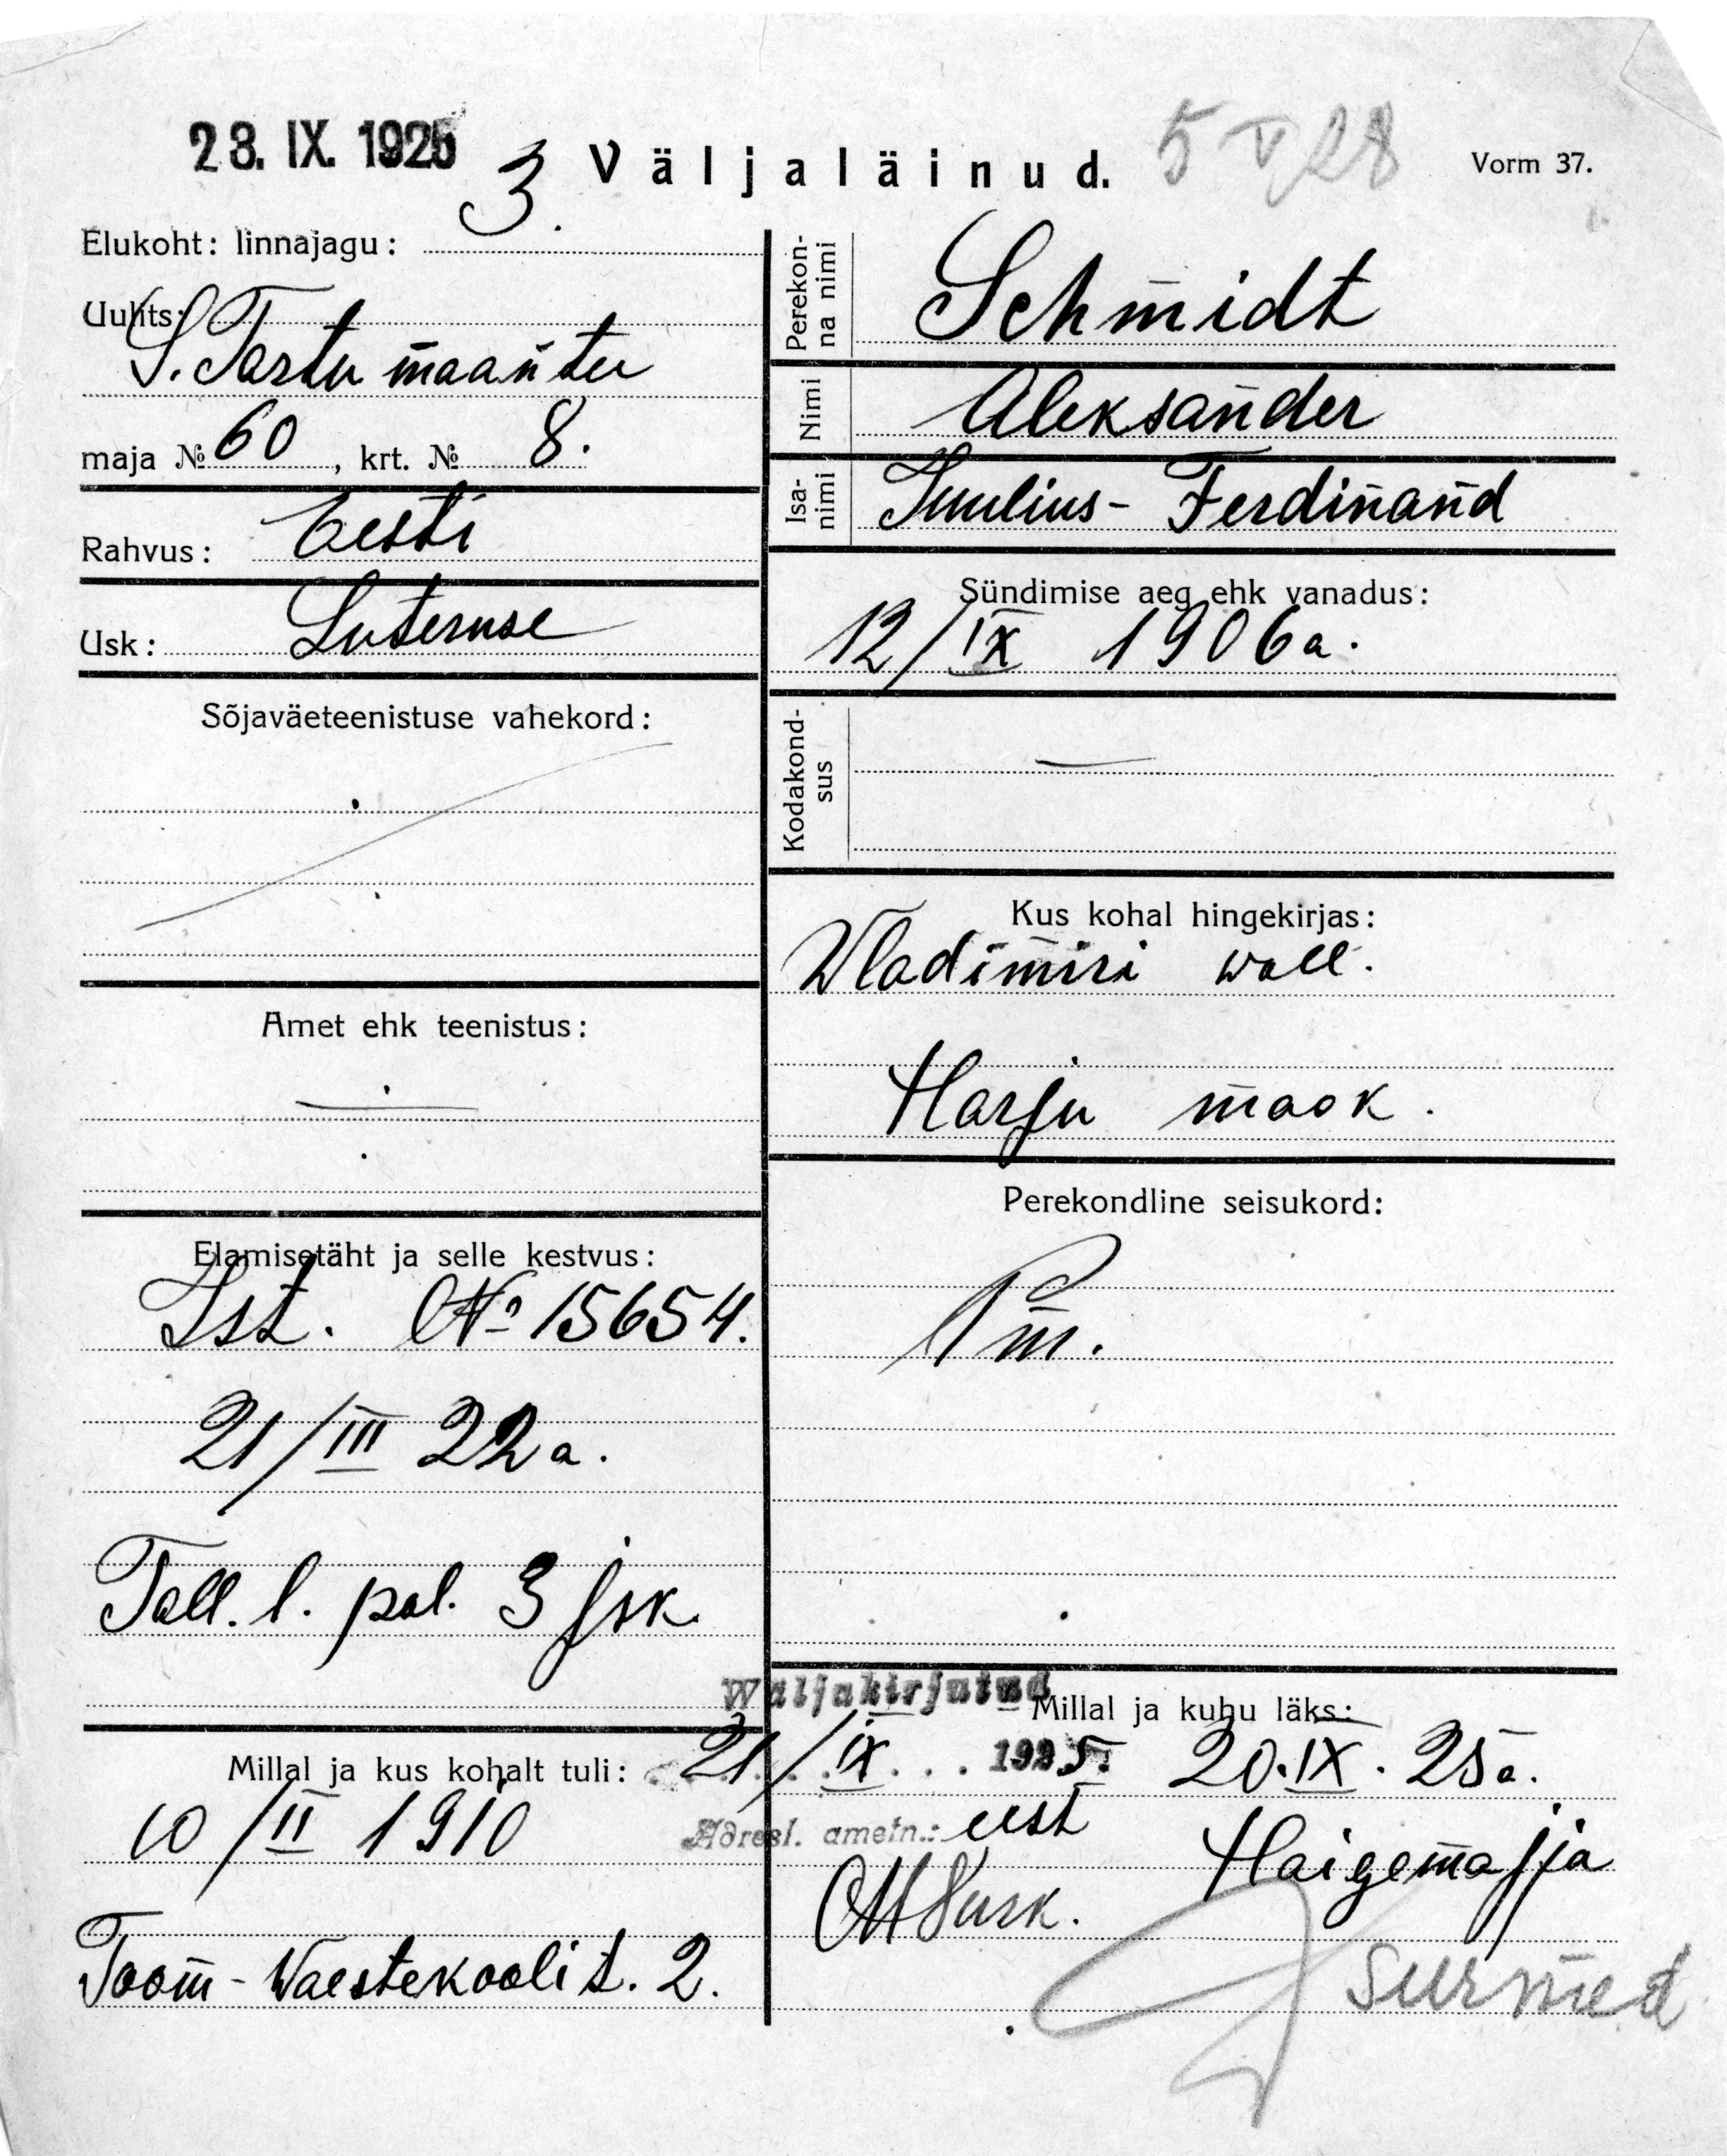 23. IX. 1925
3.
Väljaläinud.
5 V 28
Vorm 37.
Elukoht: linnajagu:
Uulits:
S. Tartu maantee
maja № 60, krt. № 8.
Rahvus: Eesti
Usk: Luteruse
Sõjaväeteenistuse vahekord:
Amet ehk teenistus:
Elamisetäht ja selle kestvus:
Ist. № 15654.
21/III 22 a.
Tall. l. pol. 3 jsk
Millal ja kus kohalt tuli:
10/II 1910
Toom-Waestekooli t. 2.
Perekonna nimi
Schmidt
Nimi
Aleksander
Isanimi
Juulius-Ferdinand
Sündimise aeg ehk vanadus:
12/IX 1906 a.
Kodakondsus
—
Kus kohal hingekirjas:
Wladimiri wall.
Harju maak.
Perekondline seisukord:
Pm.
Wäljakirjutud
21/IX 1925.
Adresl. ametn.: eest
Millal ja kuhu läks:
20.IX.25 a.
Haigemajja
surnud